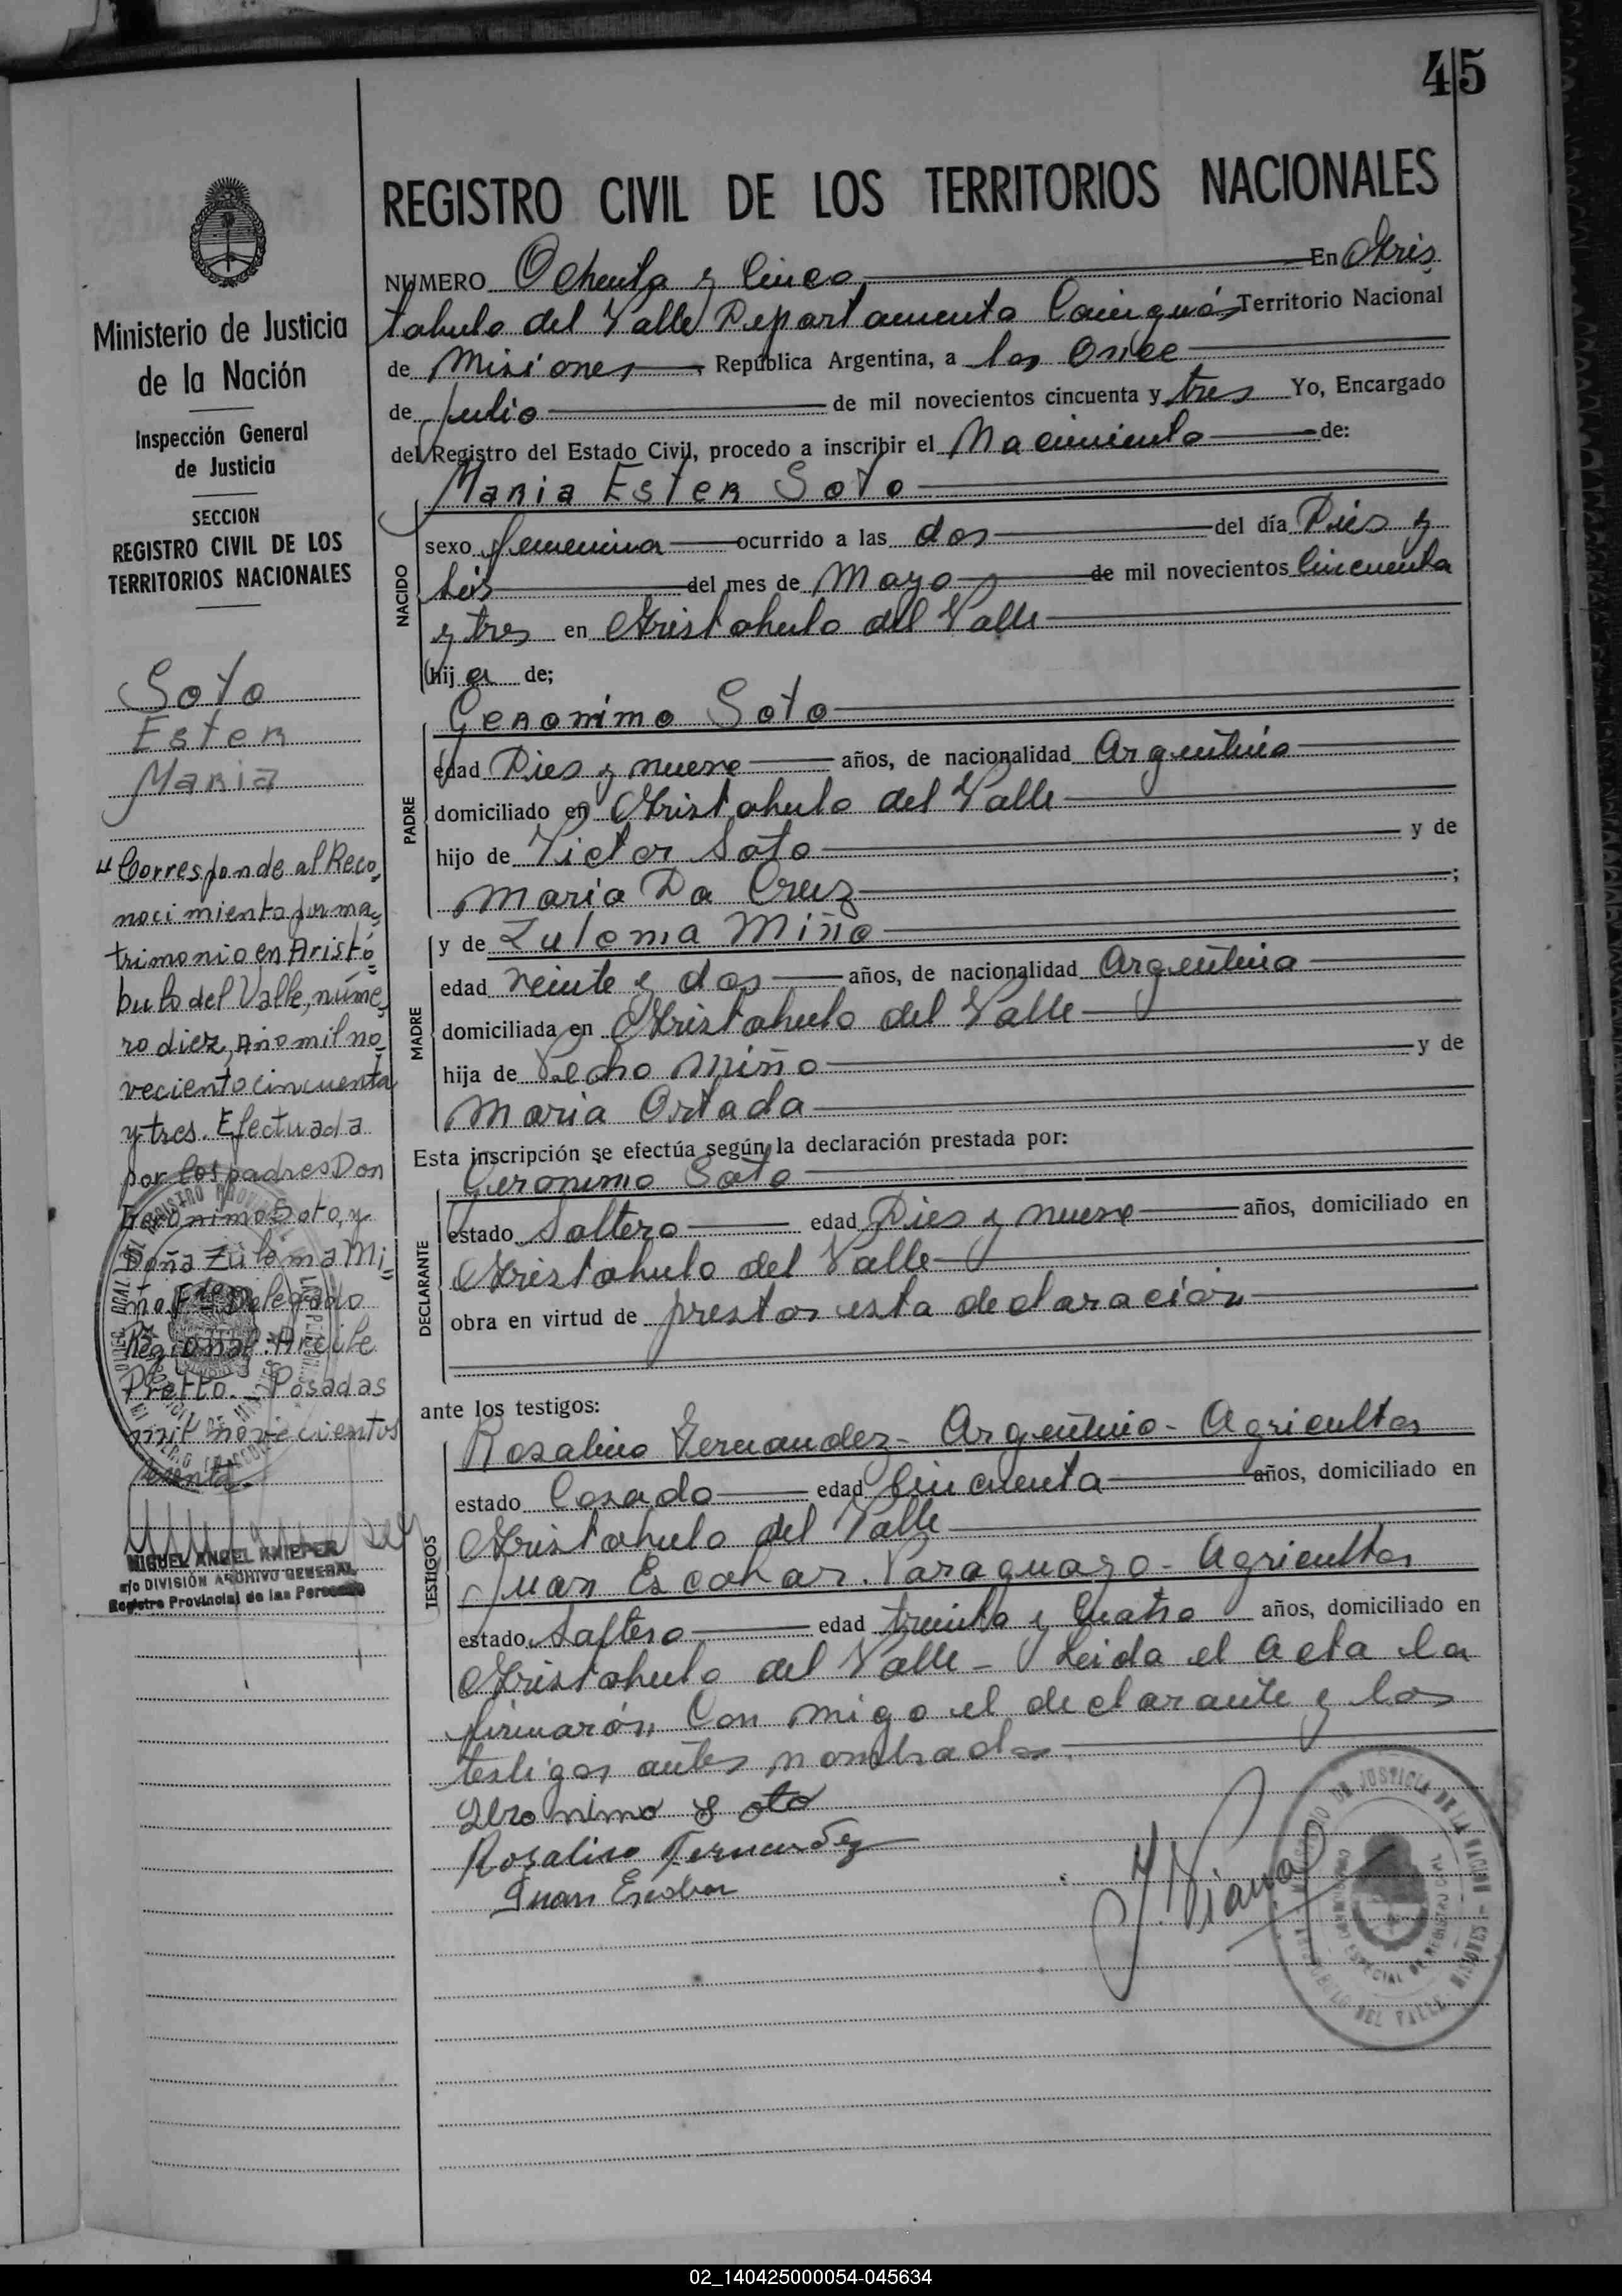 45
REGISTRO CIVIL DE LOS TERRITORIOS NACIONALES
NUMERO Ochenta y Cinco En Aris
tobulo del Valle Departamento Cainguás Territorio Nacional
de Misiones, República Argentina, a los Once
de Julio de mil novecientos cincuenta y tres Yo, Encargado
del Registro del Estado Civil, procedo a inscribir el Nacimiento de:
Maria Ester Soto
NACIDO
sexo femenina ocurrido a las dos del día Dies y
seis del mes de Mayo de mil novecientos Cincuenta
y tres en Aristobulo del Valle
hij a de;
PADRE
Geronimo Soto
edad Dies y nueve años, de nacionalidad Argentina
domiciliado en Aristobulo del Valle
hijo de Victor Soto y de
Maria Da Cruz ;
MADRE
y de Zulema Miño
edad veinte y dos años, de nacionalidad Argentina
domiciliada en Aristobulo del Valle
hija de Pedro Miño y de
Maria Ortada
Esta inscripción se efectúa según la declaración prestada por:
DECLARANTE
Geronimo Soto
estado Soltero edad Dies y nueve años, domiciliado en
Aristobulo del Valle
obra en virtud de prestar esta declaración
ante los testigos:
TESTIGOS
Rosalino Fernandez - Argentino - Agricultor
estado Casado edad Cincuenta años, domiciliado en
Aristobulo del Valle
Juan Escobar. Paraguayo - Agricultor
estado Soltero edad treinta y Cuatro años, domiciliado en
Aristobulo del Valle - Leida el Acta la
firmarón Con migo el declarante y los
testigos antes nombrados.
Geronimo Soto
Rosalino Fernandez
Juan Escobar
MINISTERIO DE JUSTICIA DE LA NACION
ARISTOBULO DEL VALLE - MISIONES -
Ministerio de Justicia
de la Nación
Inspección General
de Justicia
SECCION
REGISTRO CIVIL DE LOS
TERRITORIOS NACIONALES
Soto
Ester
Maria
"Corresponde al Reco-
nocimiento por ma-
trimonio en Aristó-
bulo del Valle, núme-
ro diez, Año mil no-
veciento cincuenta
y tres. Efectuada
por los padres Don
Gerónimo Soto, y
Doña Zulema Mi-
ño. Fdo. Delegado
Regional:
Pretto. - Posadas
mil novecientos
MIGUEL ANGEL KNIEPER
a/c DIVISIÓN ARCHIVO GENERAL
Registro Provincial de las Personas
02_140425000054-045634